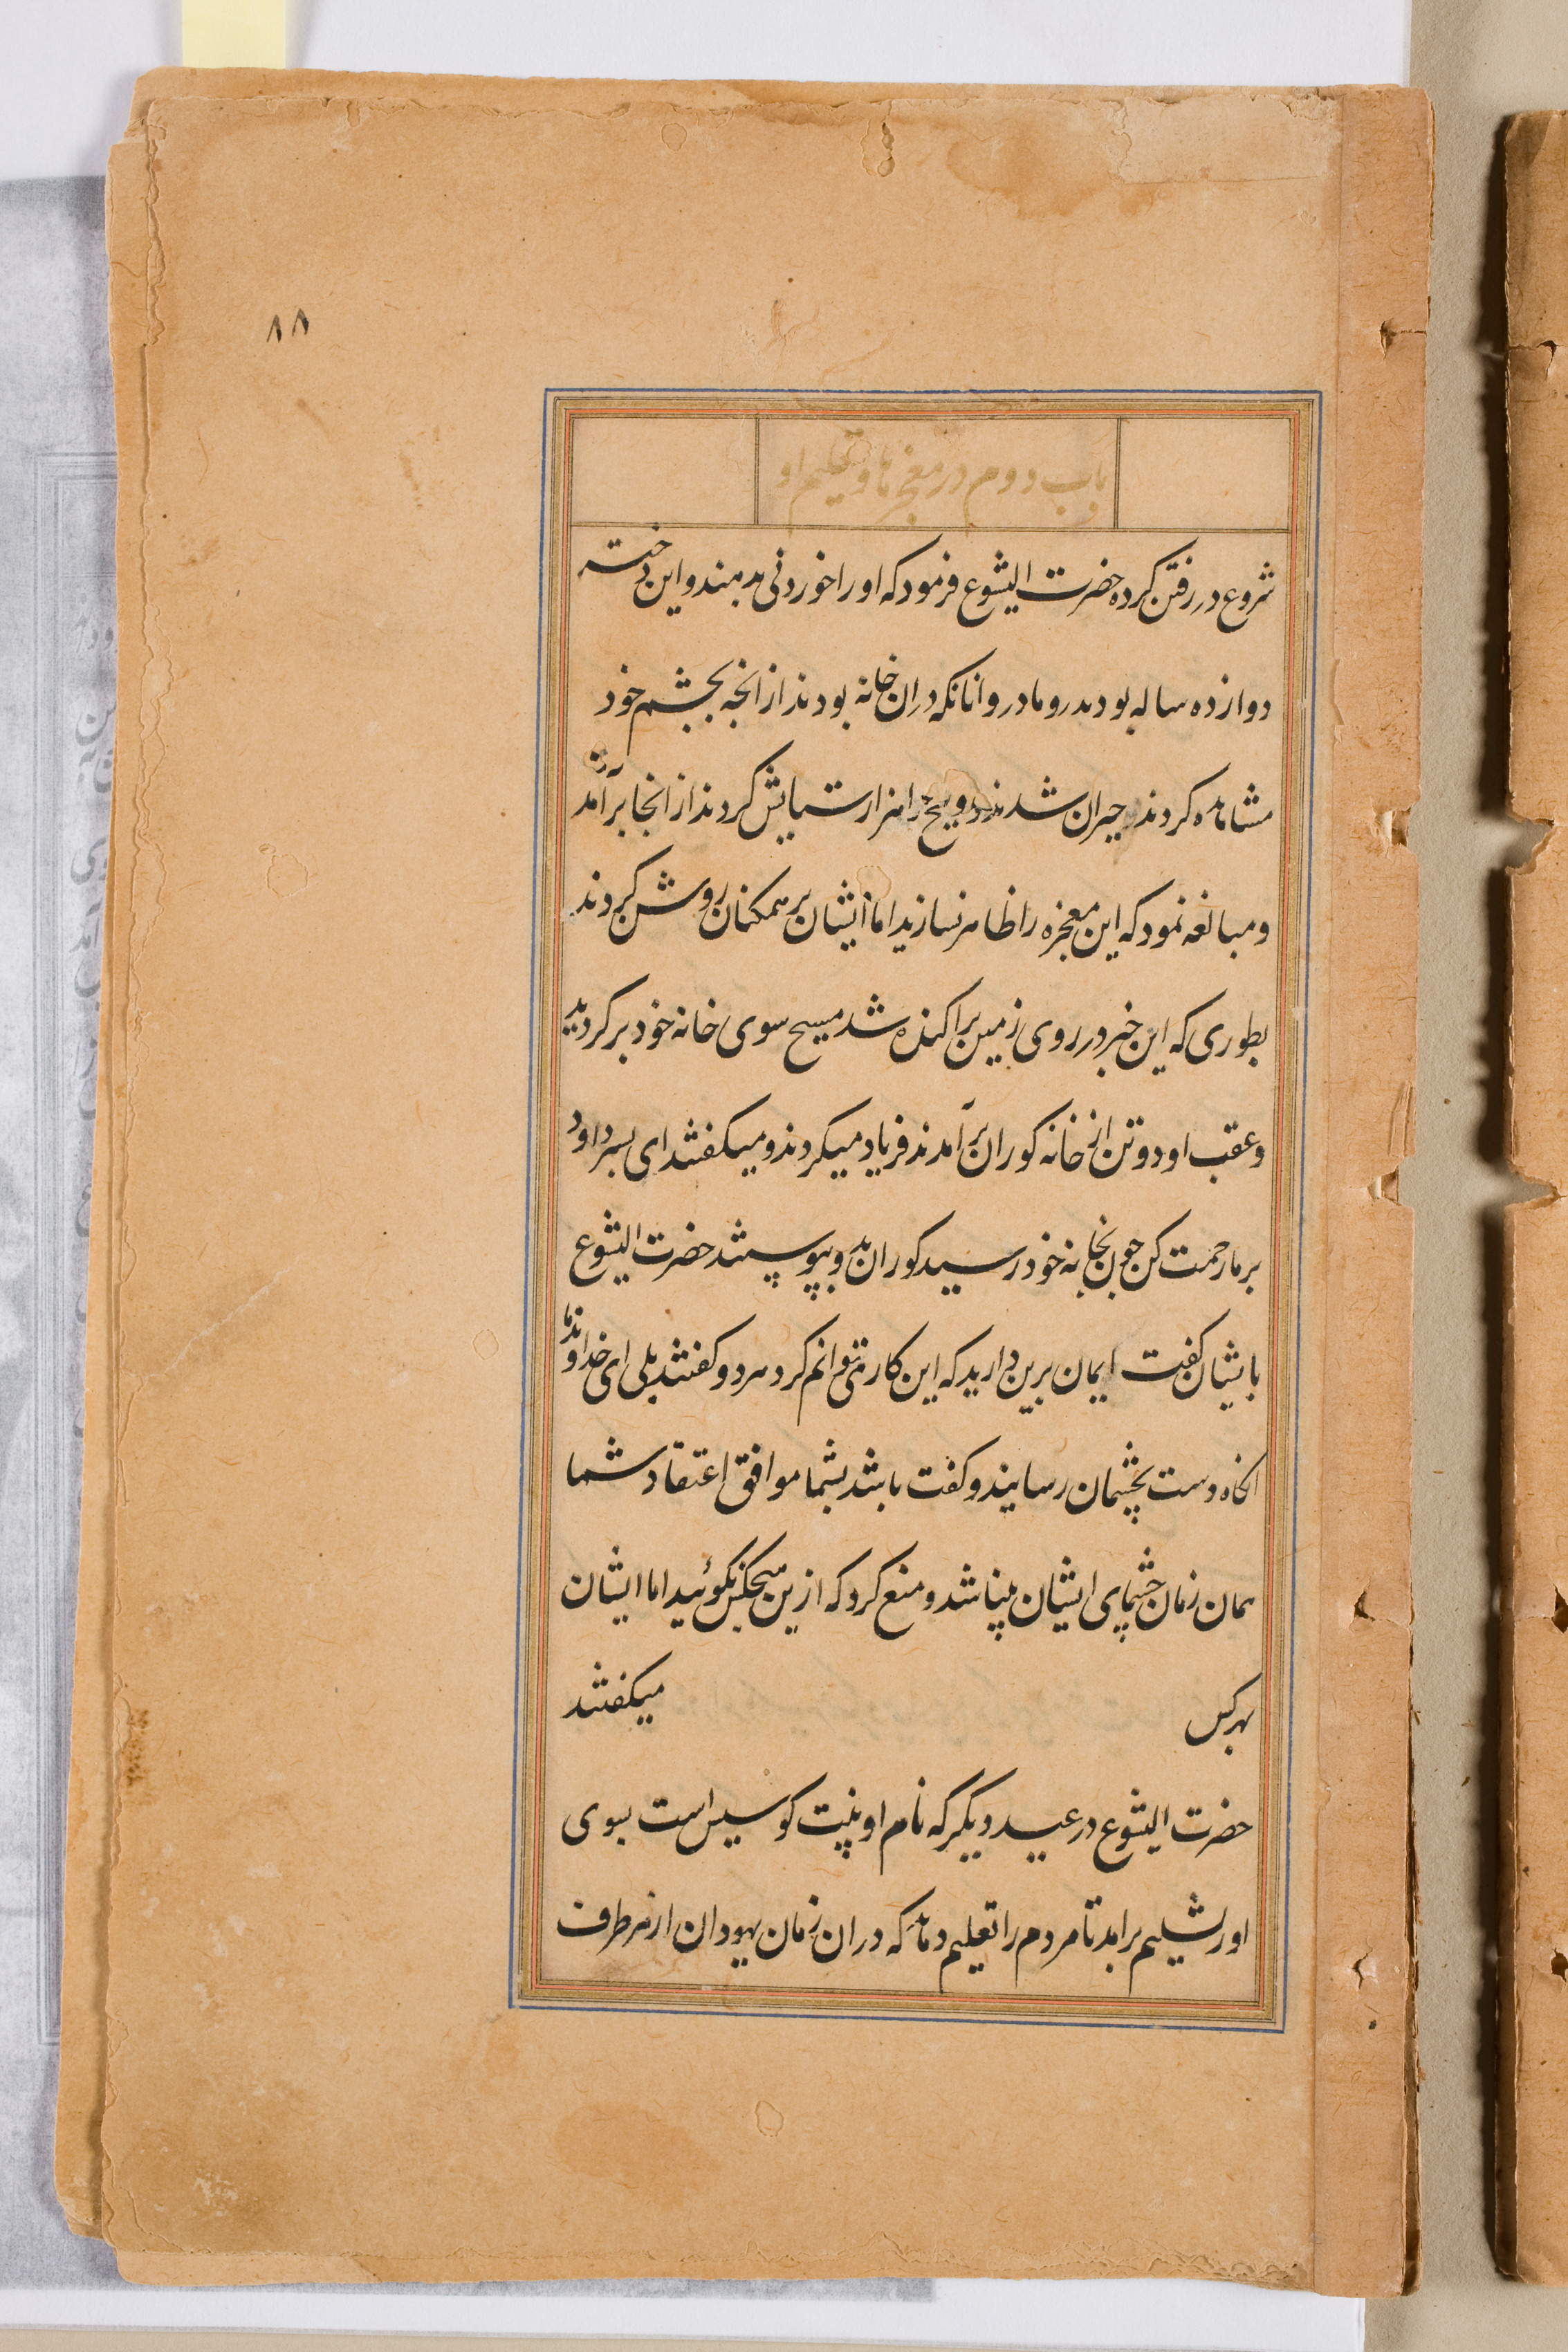 ۸۸
باب دوم در معجزها و تعلیم او
شروع در رفتن کرده حضرت الیشوع فرمود که او را خوردنی بدهند و این دختر
دوازده ساله بود پدر و مادر و انانکه دران خانه بودند از انچه بچشم خود
مشاهده کردند حیران شدند و مسیح را هزار ستایش کردند از انجا برآمد
و مبالغه نمود که این معجزه را ظاهر نسازید اما ایشان بر همکنان روشن کردند
بطوری که این خبر در روی زمین پراکنده شد مسیح سوی خانه خود برکردید
و عقب او دو تن از خانه کوران برآمدند فریاد میکردند و میکفتند ای پسر داود
بر ما رحمت کن چون بخانه خود رسید کوران بدو پیوستند حضرت الیشوع
بایشان کفت ایمان برین دارید که این کار می توانم کرد هر دو کفتند بلی ای خداوند ما
انکاه دست بچشمان رسانید و کفت باشد بشما موافق اعتقاد شما
همان زمان چشمهای ایشان بینا شد و منع کرد که ازین بهیچکس نکوئید اما ایشان
بهر کس میکفتند
حضرت الیشوع در عید دیکر که نام او پنت کوسیس است بسوی
اورشلیم برامد تا مردم را تعلیم دهد که دران زمان یهودان از هر طرف